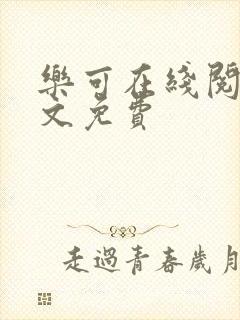 樂可在綫閱
文免費
走過青春歲月